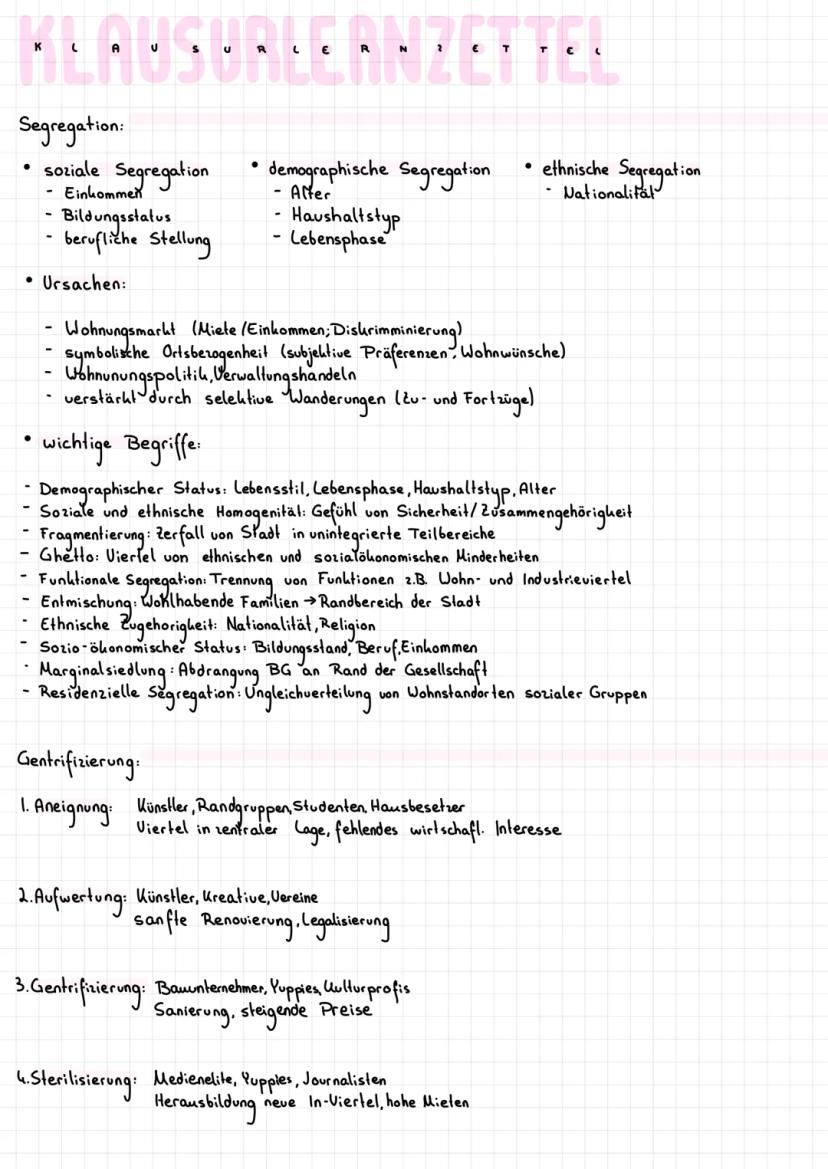 KLAUSURLERNZETTEL
KLAUSURLERNZETTEL
Segregation:
• soziale Segregation
- Einkommen
- Bildungsstatus
- berufliche Stellung
• demographische Segregation
- Alter
- Haushaltstyp
- Lebensphase
• ethnische Segregation
- Nationalität
• Ursachen:
- Wohnungsmarkt (Miete/Einkommen; Diskrimminierung)
- symbolische Ortsbezogenheit (subjektive Präferenzen, Wohnwünsche)
- Wohnunungspolitik, Verwaltungshandeln
- verstärkt durch selektive Wanderungen (Zu- und Fortzüge)
• wichtige Begriffe:
- Demographischer Status: Lebensstil, Lebensphase, Haushaltstyp, Alter
- Soziale und ethnische Homogenität: Gefühl von Sicherheit/Zusammengehörigkeit
- Fragmentierung: Zerfall von Stadt in unintegrierte Teilbereiche
- Ghetto: Viertel von ethnischen und sozialökonomischen Minderheiten
- Funktionale Segregation: Trennung von Funktionen z.B. Wohn- und Industrieviertel
- Entmischung: Wohlhabende Familien → Randbereich der Stadt
- Ethnische Zugehorigkeit: Nationalität, Religion
- Sozio-ökonomischer Status: Bildungsstand, Beruf, Einkommen
- Marginalsiedlung: Abdrangung BG an Rand der Gesellschaft
- Residenzielle Segregation: Ungleichverteilung von Wohnstandorten sozialer Gruppen
Gentrifizierung:
1. Aneignung: Künstler, Randgruppen, Studenten, Hausbesetzer
Viertel in zentraler Lage, fehlendes wirtschafl. Interesse
2. Aufwertung: Künstler, Kreative, Vereine
sanfte Renovierung, Legalisierung
3. Gentrifizierung: Bauunternehmer, Yuppies, Kulturprofis
Sanierung, steigende Preise
4. Sterilisierung: Medienelite, Yuppies, Journalisten
Herausbildung neue In-Viertel, hohe Mieten